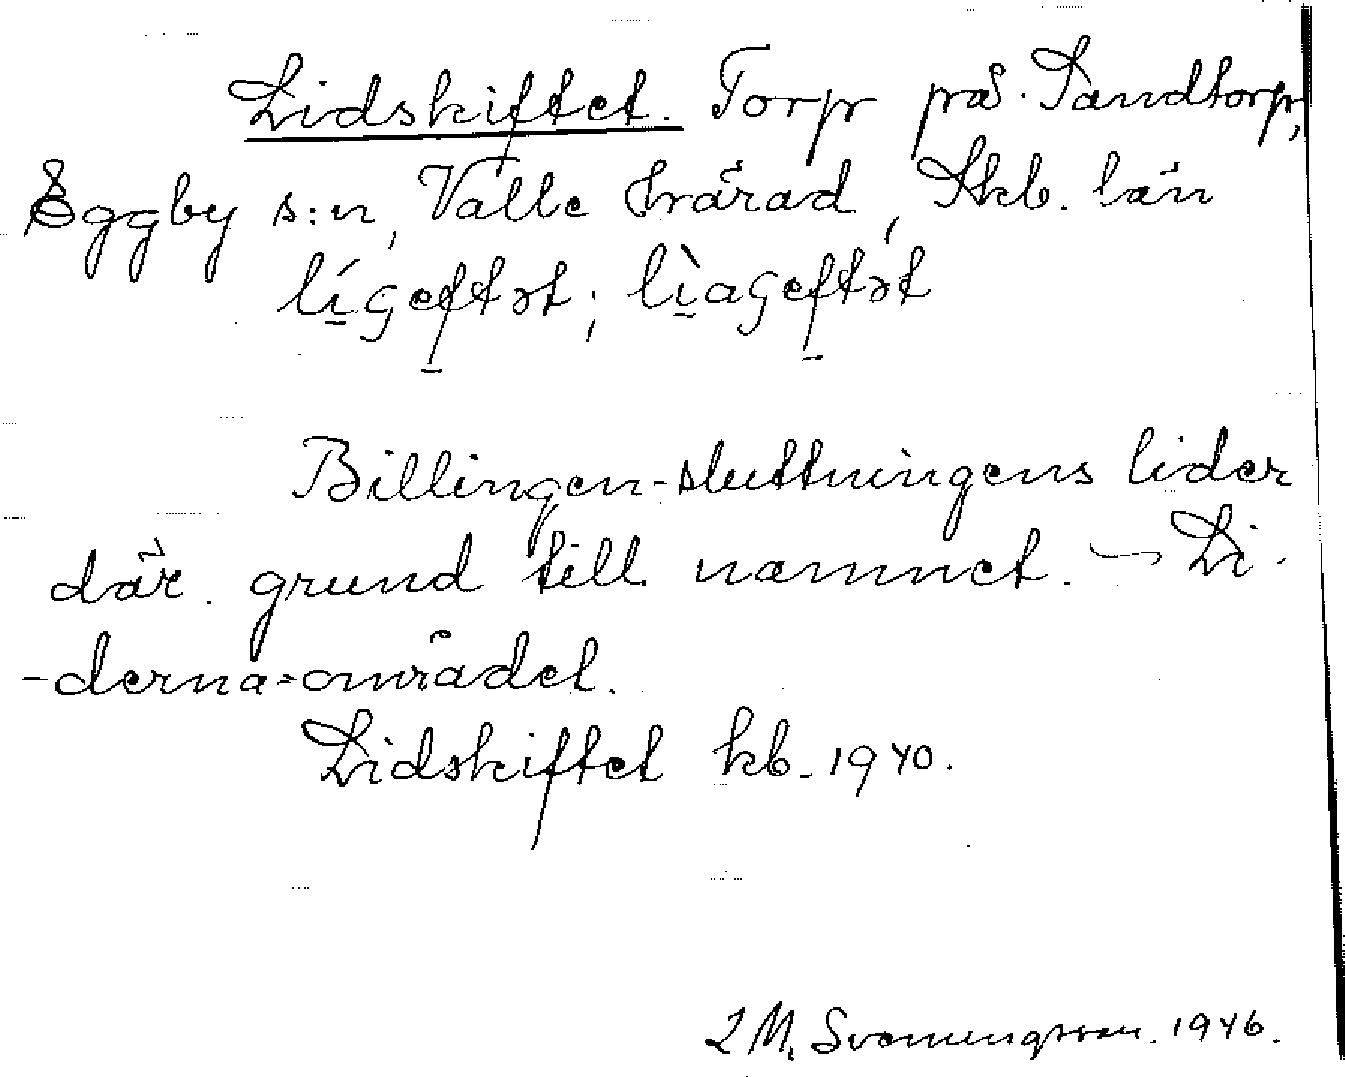 Lidskiftet. Torp på Sandtorp,
Eggby s:n, Valle härad, Skb. län
Billingen-sluttningens lider
där grund till namnet. – Li-
-derna-området.
Lidskiftet kb. 1940.
L M. Svenungsson. 1946.